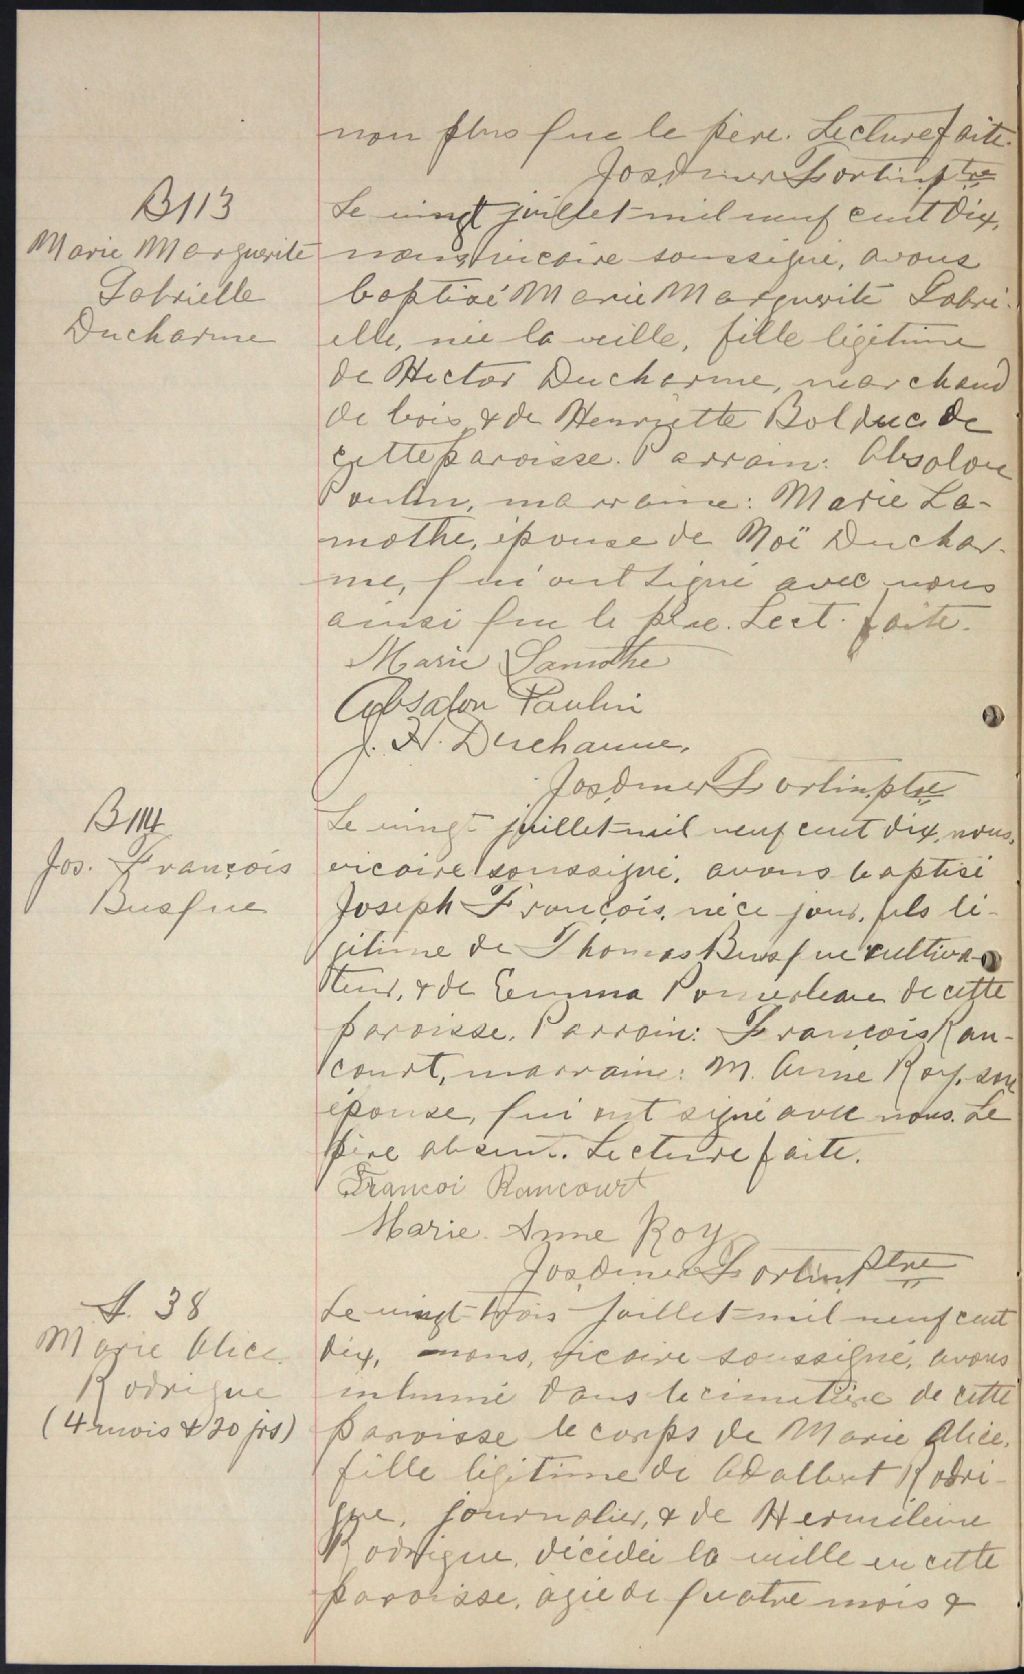 non plus que le père. Lecture faite.
Jos. Omer Fortin, ptre
B113
Marie Marguerite
Gabrielle
Ducharme
Le vingt juillet mil neuf cent dix,
nous, vicaire soussigné, avons
baptisé Marie Marguerite Gabri-
elle, née la veille, fille légitime
de Hector Ducharme, marchand
de bois & de Henriette Bolduc de
cette paroisse. Parrain: Absolon
Poulin, marraine: Marie La-
mothe, épouse de Noï Duchar-
me, qui ont signé avec nous
ainsi que le père. Lect. faite.
Marie Lamothe
Absalon Paulin
J. H. Ducharme.
Jos. Omer Fortin, ptre
B114
Jos. François
Busque
Le vingt juillet mil neuf cent dix, nous,
vicaire soussigné, avons baptisé
Joseph François, né ce jour, fils lé-
gitime de Thomas Busque cultiva-
teur, & de Emma Pomerleau de cette
paroisse. Parrain: François Ran-
court, marraine: M. Anne Roy, son
épouse, qui ont signé avec nous. Le
père absent. Lecture faite.
Francoi Rancourt
Marie Anne Roy
Jos. Omer Fortin Ptre
S. 38
Marie Alice
Rodrigue
(4 mois & 20 jrs)
Le vingt-trois juillet mil neuf cent
dix, nous, vicaire soussigné, avons
inhumé dans le cimetière de cette
paroisse le corps de Marie Alice,
fille légitime de Adalbert Rodri-
gue, journalier, & de Herméline
Rodrigue, décédée la veille en cette
paroisse, agée de quatre mois &